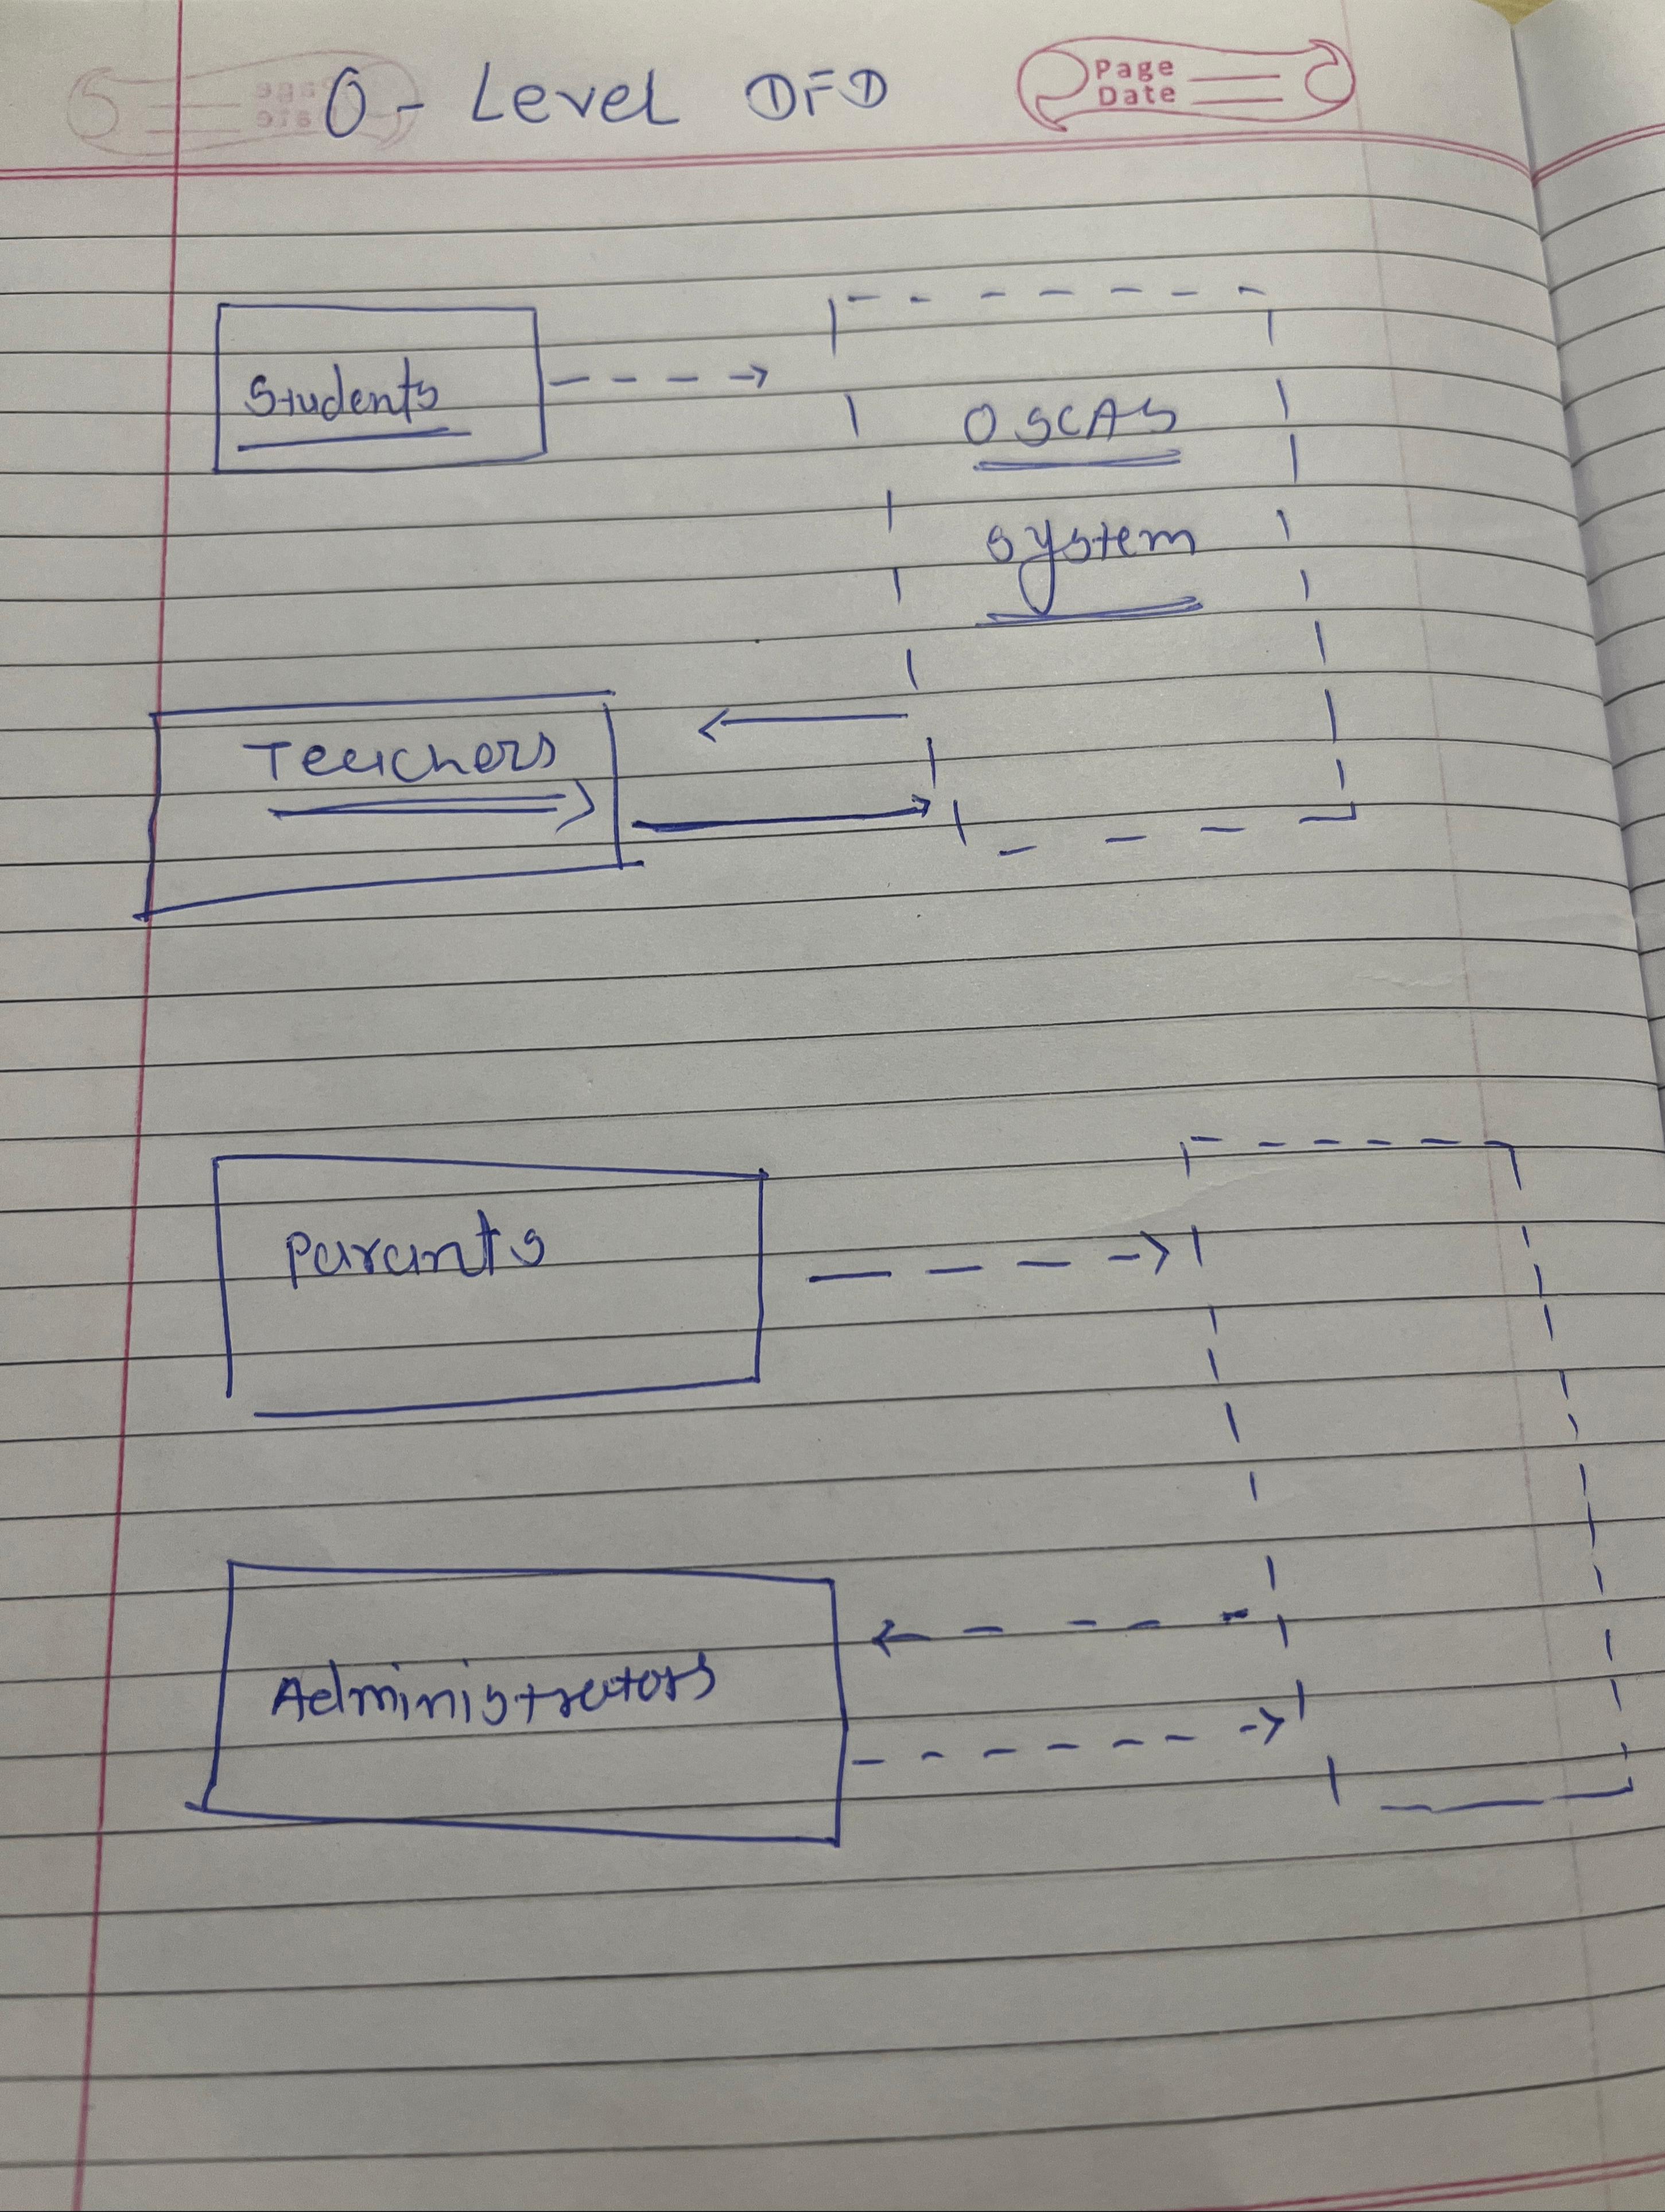 0- Level DFD
Page
Date
Students
OSCAS
system
Teachers
Parants
Administrators